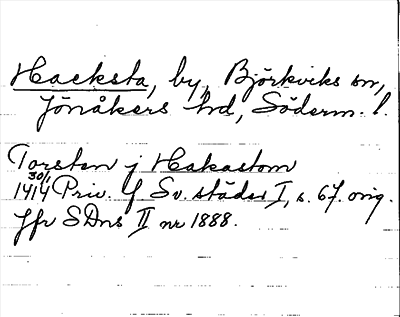 Hacksta, by, Björkviks sn,
Jönåkers hd, Söderm. l.
Torsten j Hakastom
30/1
1414 Priv. f Sv. städer I, s. 67. orig.
Jfr SDns II nr 1888.